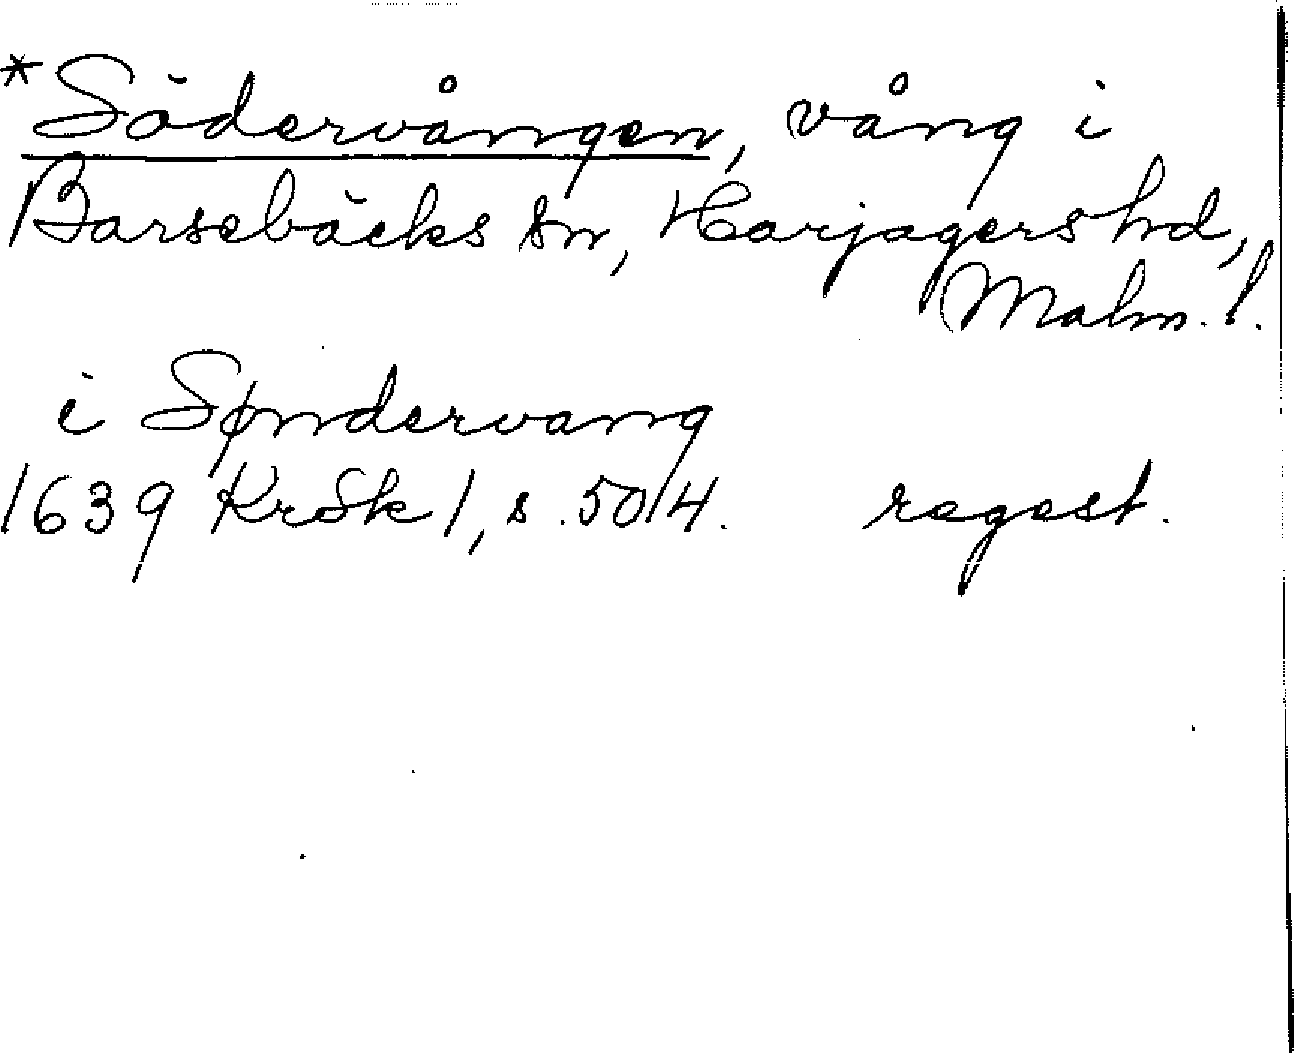 *Södervången, vång i
Barsebäcks sn, Harjagers hd,
Malm. l.
i Søndervang
1639 KrSk 1, s. 504. regest.